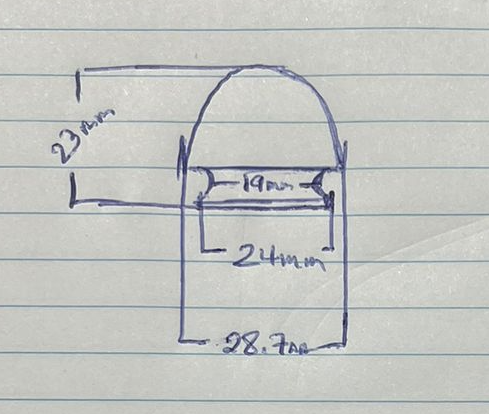 23mm
19mm
24mm
28.7mm